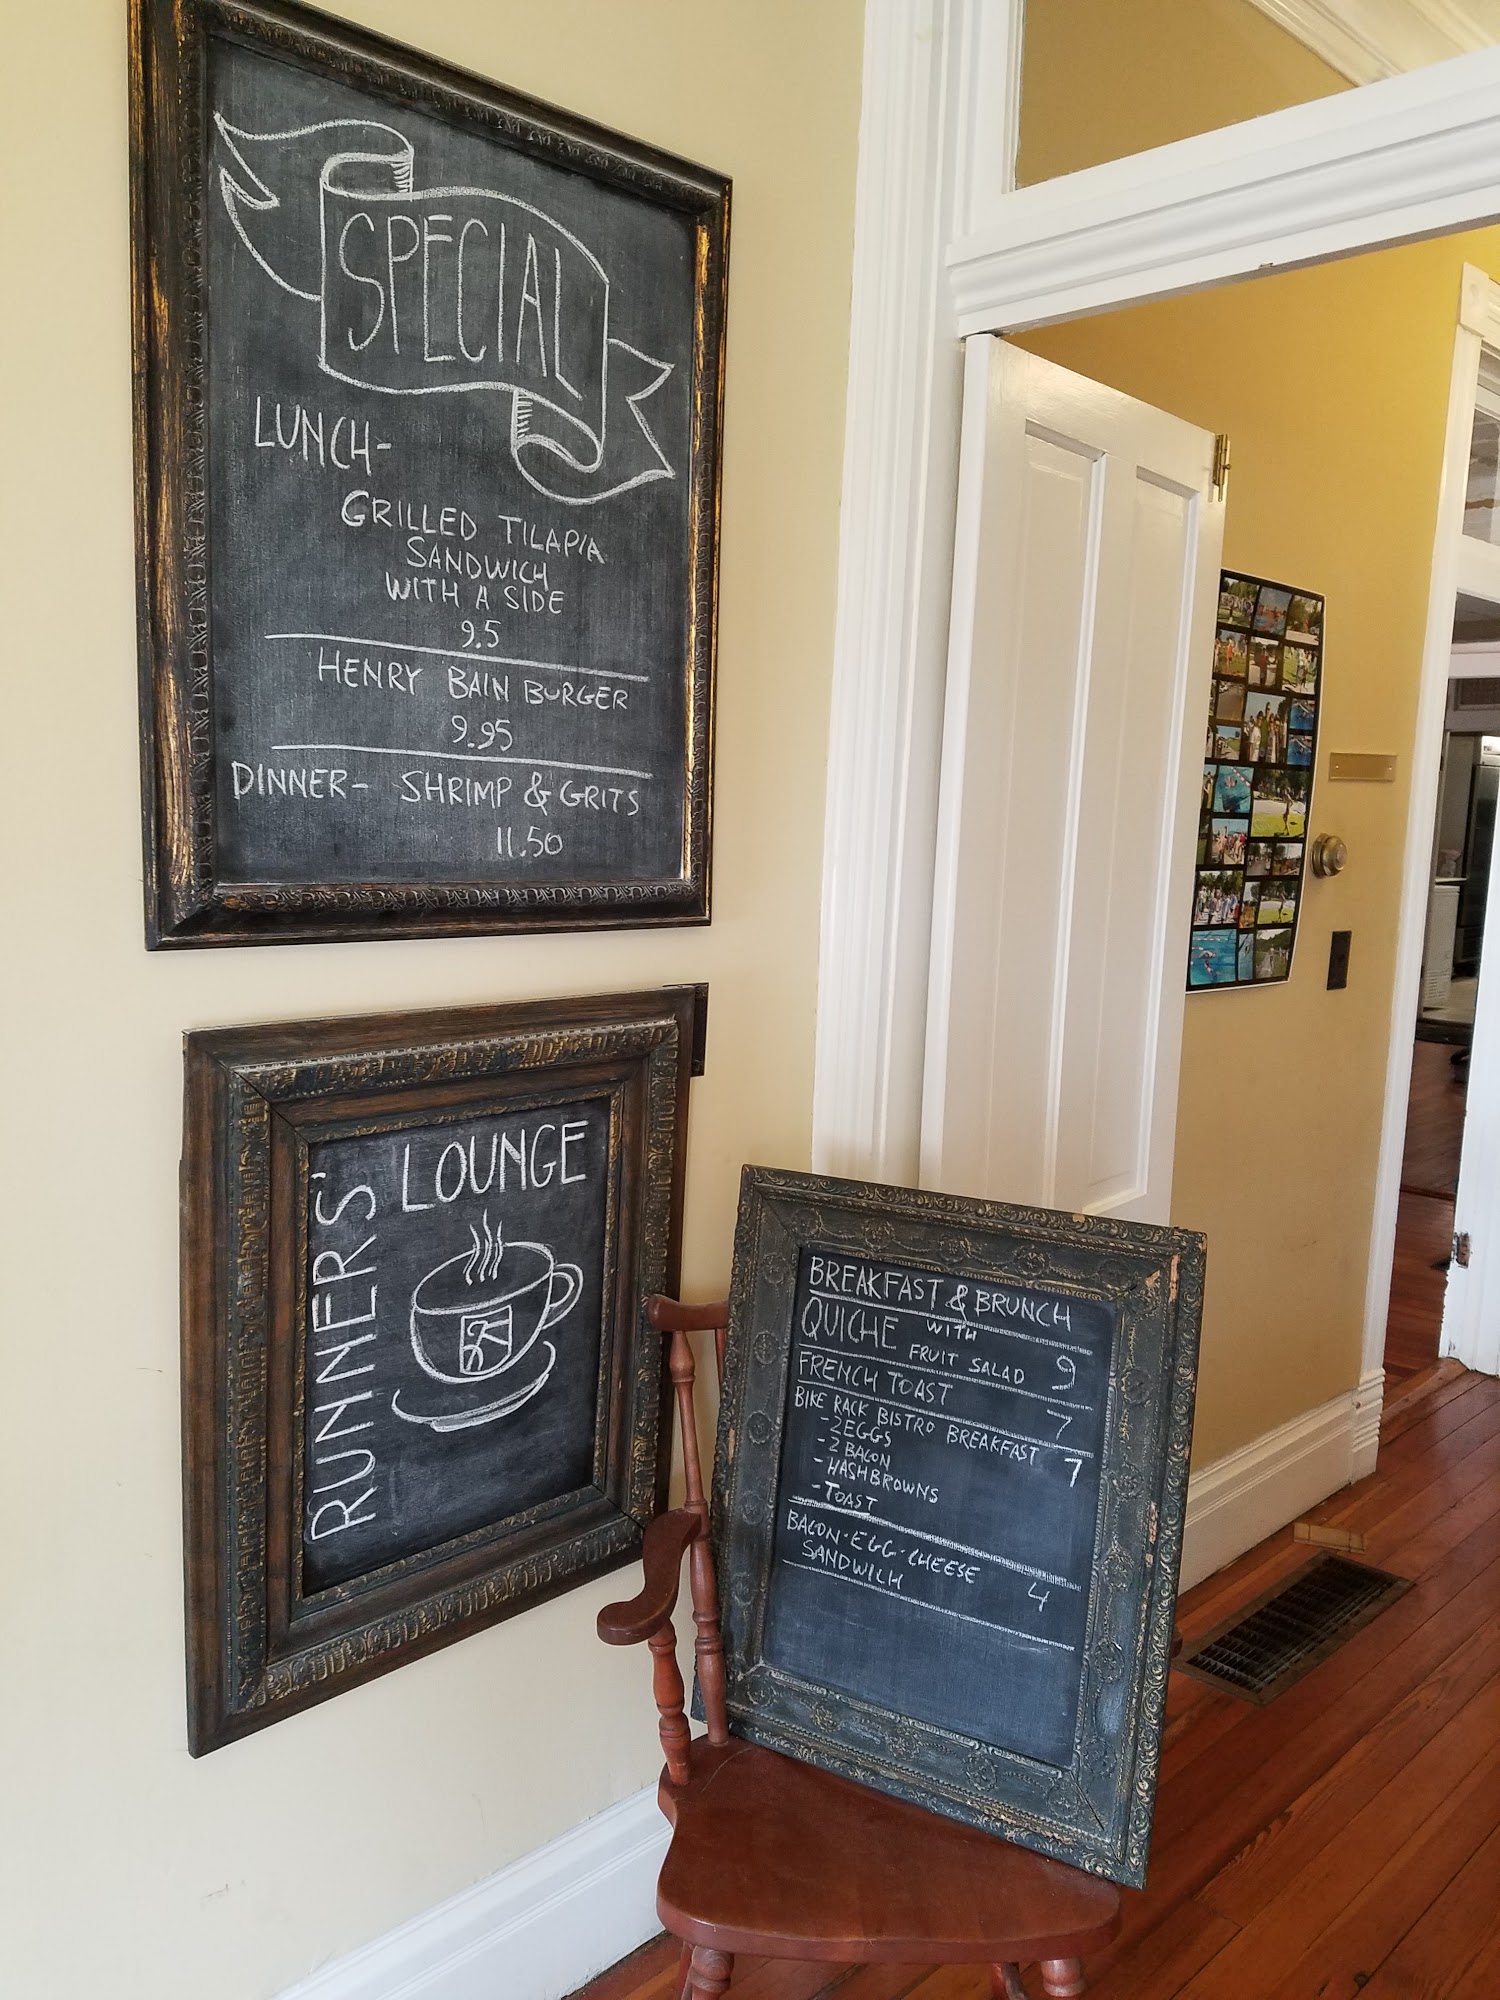 SPECIAL
LUNCH-
GRILLED TILAPIA
SANDWICH
WITH A SIDE
9.5
HENRY BAIN BURGER
9.95
DINNER- SHRIMP & GRITS
11.50
RUNNERS'
LOUNGE
BREAKFAST & BRUNCH
QUICHE WITH
FRUIT SALAD 9
FRENCH TOAST 7
BIKE RACK BISTRO BREAKFAST 7
-2EGGS
-2 BACON
-HASHBROWNS
-TOAST
BACON-EGG-CHEESE
SANDWICH 4